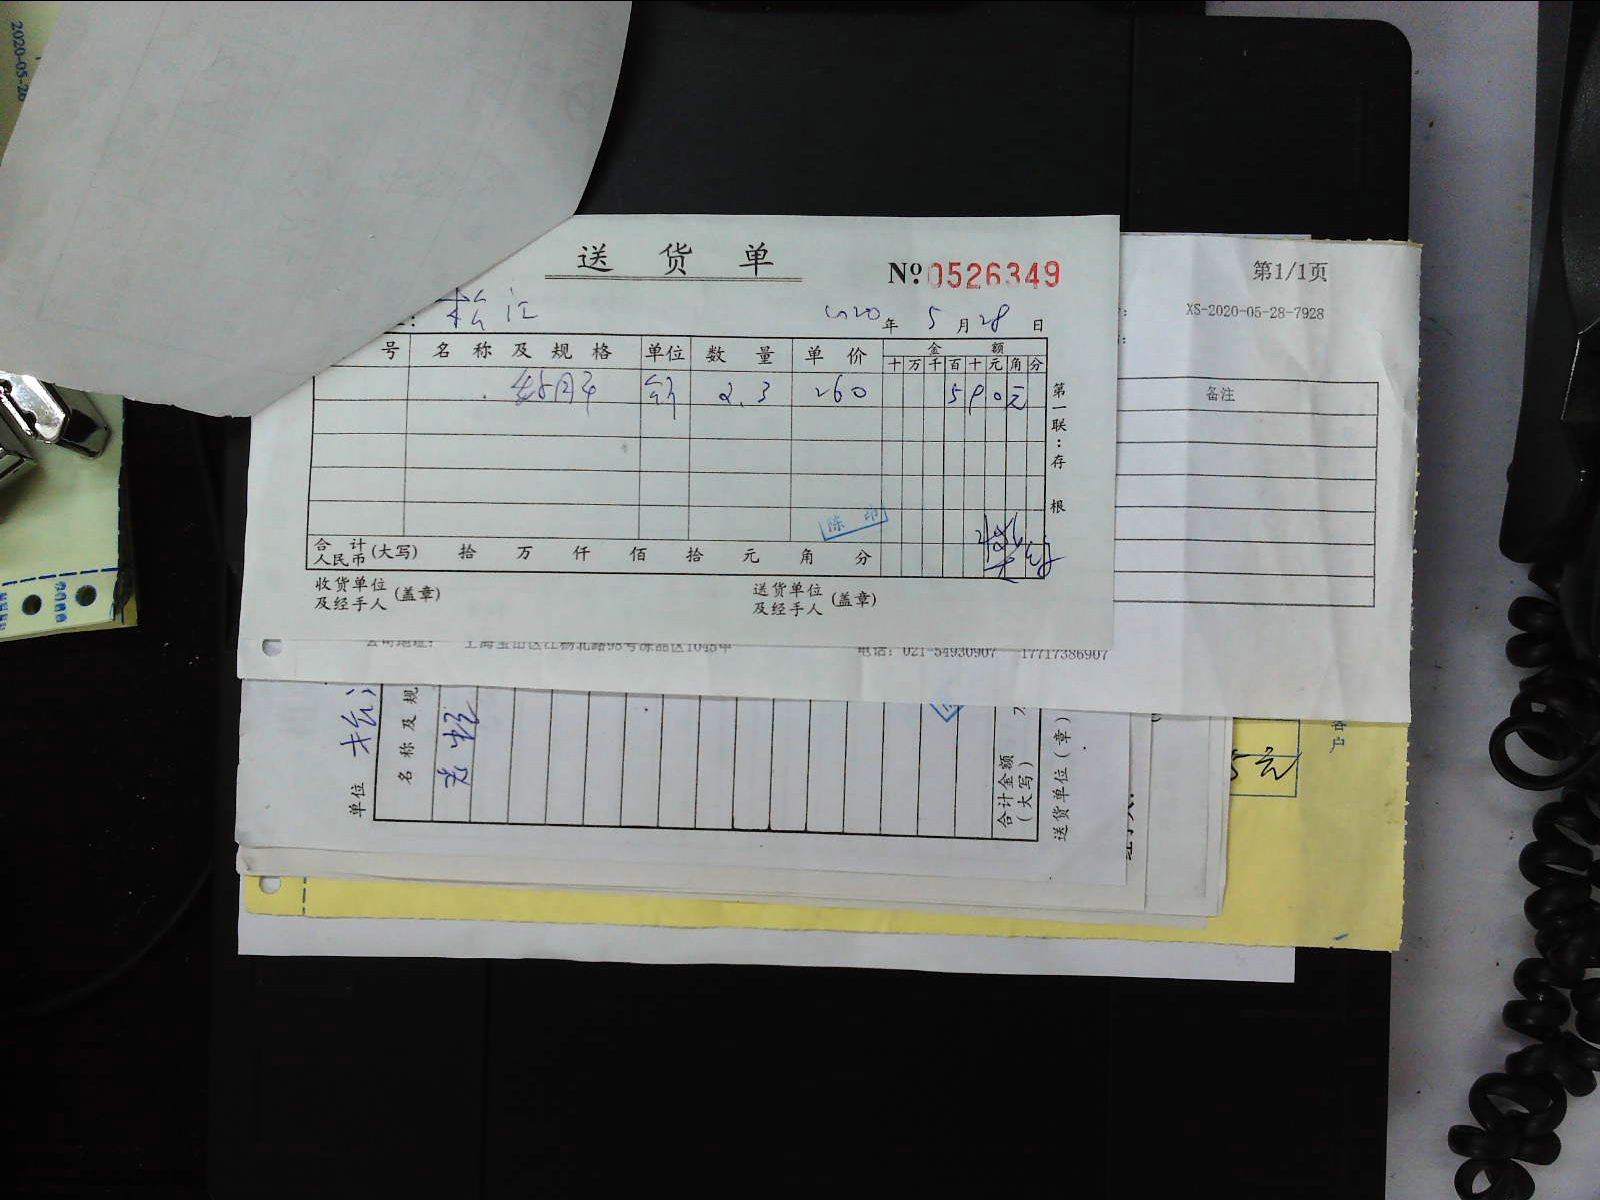 2020-05-26
送货单
№0526349
松江
2020年5月28日
号 名称及规格 单位 数量 单价 金额
十万千百十元角分
斤 2.3 260 590元
第一联:存根
陈印
合计人民币(大写) 拾 万 仟 佰 拾 元 角 分
收货单位及经手人(盖章) 送货单位及经手人(盖章)
第1/1页
XS-2020-05-28-7928
备注
公司地址: 上海宝山区江杨北路98号冻品区1045甲 电话: 021-54930907 17717386907
单位 松江
名称及规
合计金额(大写)
送货单位(章)
5元